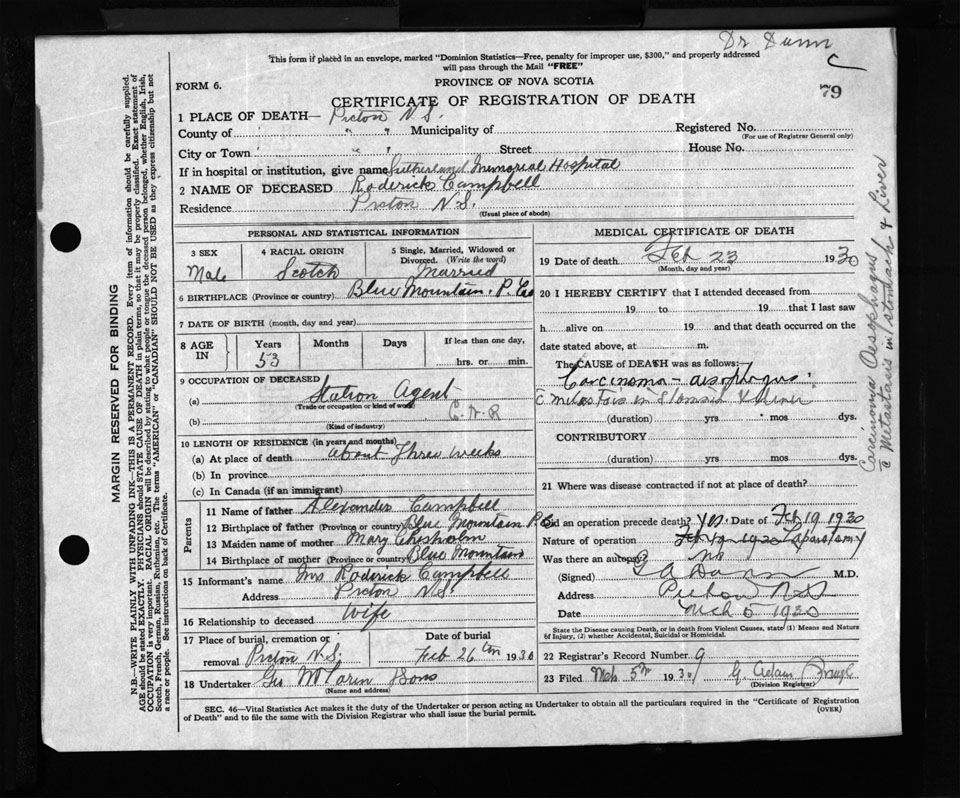 Dr Dunn
C
This form if placed in an envelope, marked "Dominion Statistics—Free, penalty for improper use, $300," and properly addressed
will pass through the Mail "FREE"
FORM 6.
PROVINCE OF NOVA SCOTIA
79
CERTIFICATE OF REGISTRATION OF DEATH
1 PLACE OF DEATH— Picton N.S.
County of " " Municipality of Registered No.
(For use of Registrar General only)
City or Town " " Street House No.
If in hospital or institution, give name Sutherland Memorial Hospital
2 NAME OF DECEASED Roderick Campbell
Residence Picton N.S.
(Usual place of abode)
PERSONAL AND STATISTICAL INFORMATION
3 SEX 4 RACIAL ORIGIN 5 Single, Married, Widowed or
Divorced. (Write the word)
Male Scotch Married
6 BIRTHPLACE (Province or country) Blue Mountain, P. Co
7 DATE OF BIRTH (month, day and year)
8 AGE IN Years Months Days If less than one day,
53 hrs. or min.
9 OCCUPATION OF DECEASED
(a) Station Agent
(Trade or occupation or kind of work)
(b) C.N.R
(Kind of industry)
10 LENGTH OF RESIDENCE (in years and months)
(a) At place of death about Three weeks
(b) In province
(c) In Canada (if an immigrant)
Parents
11 Name of father Alexander Campbell
12 Birthplace of father (Province or country) Blue Mountain P.C.
13 Maiden name of mother Mary Chesholm
14 Birthplace of mother (Province or country) Blue Mountain
15 Informant's name Mrs Roderick Campbell
Address Picton N.S.
16 Relationship to deceased Wife
17 Place of burial, cremation or Date of burial
removal Picton N.S. Feb 26 1930
18 Undertaker Geo McLaren & Sons
(Name and address)
MEDICAL CERTIFICATE OF DEATH
19 Date of death Feb 23 1930
(Month, day and year)
20 I HEREBY CERTIFY that I attended deceased from
19 to 19 that I last saw
h alive on 19 and that death occurred on the
date stated above, at m.
The CAUSE OF DEATH was as follows:
Carcinoma — aesophagus
c metastasis in Stomach & Liver
(duration) yrs mos dys.
CONTRIBUTORY
(duration) yrs mos dys.
21 Where was disease contracted if not at place of death?
Did an operation precede death? Yes. Date of Feb 19 1930
Nature of operation Laparotomy
Was there an autopsy? No
(Signed) G A Dunn M.D.
Address Picton N.S.
Date Mch 5 1930
State the Disease causing Death, or in death from Violent Causes, state (1) Means and Nature
of Injury, (2) whether Accidental, Suicidal or Homicidal.
22 Registrar's Record Number 9
23 Filed Mch 5th 1930 G. Adam
(Division Registrar)
SEC. 46—Vital Statistics Act makes it the duty of the Undertaker or person acting as Undertaker to obtain all the particulars required in the "Certificate of Registration
of Death" and to file the same with the Division Registrar who shall issue the burial permit.
(OVER)
MARGIN RESERVED FOR BINDING
N.B.—WRITE PLAINLY WITH UNFADING INK—THIS IS A PERMANENT RECORD. Every item of information should be carefully supplied.
AGE should be stated EXACTLY. PHYSICIANS should STATE CAUSE OF DEATH in plain terms, so that it may be properly classified. Exact statement of
OCCUPATION is very important. RACIAL ORIGIN will be described by stating to what people or tongue the deceased person belonged, whether English, Irish,
Scotch, French, German, Russian, Ruthenian, etc. The terms "AMERICAN" or "CANADIAN" SHOULD NOT BE USED as they express citizenship but not
a race or people. See instructions on back of Certificate.
Carcinoma Aesophagus
c Metastasis in stomach & Liver